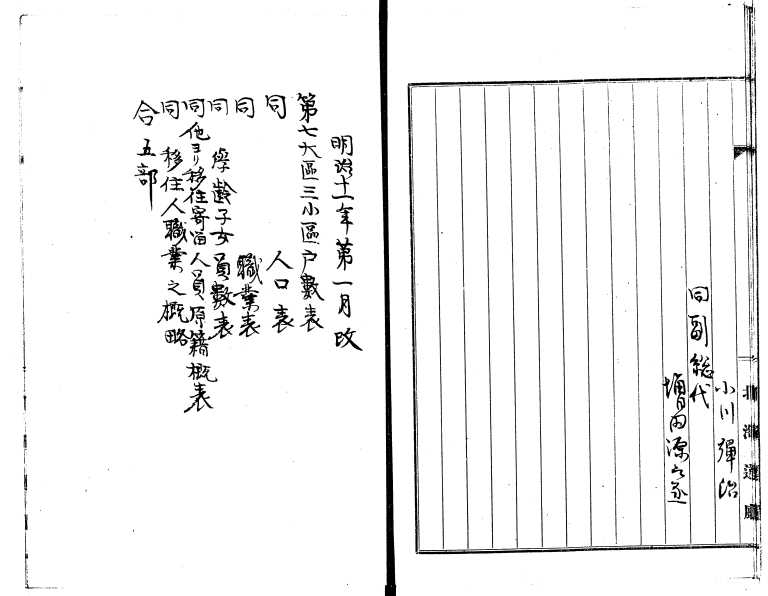 小川彈治
同副総代
増田源之丞
北海道廳
明治十一年第一月改
第七大區三小區戸數表
同 人口表
同 職業表
同 學齡子女員數表
同他ヨリ移住寄留人員原籍概表
同 移住人職業之概略
合五部